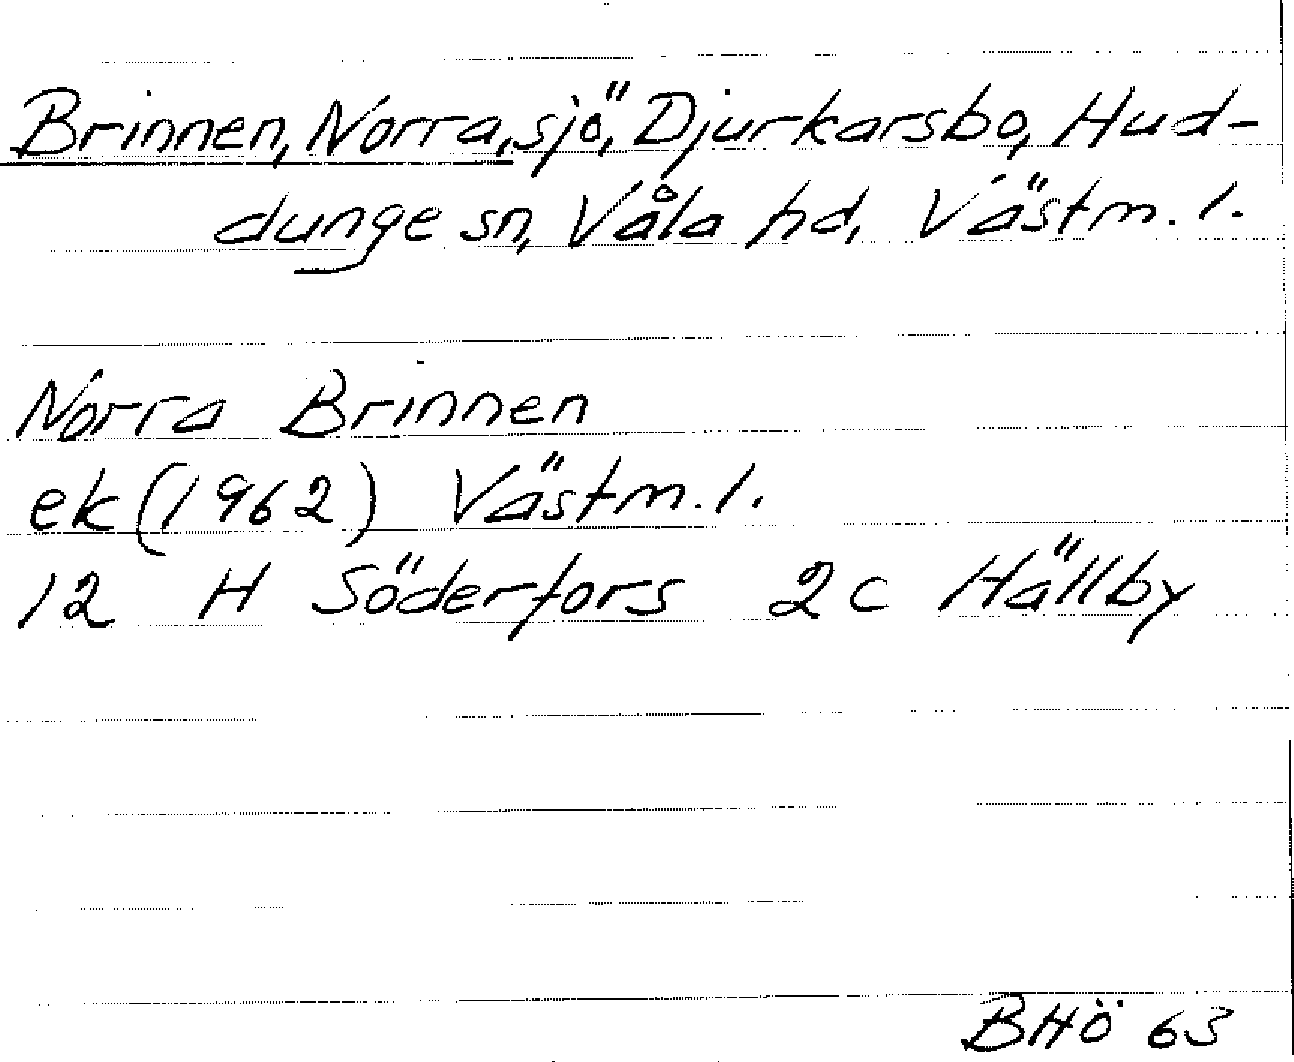 Brinnen, Norra, sjö, Djurkarsbo, Hud-
dunge sn, Våla hd, Västm. l.
Norra Brinnen
ek (1962) Västm. l.
12 H Söderfors 2c Hällby
BHÖ 63